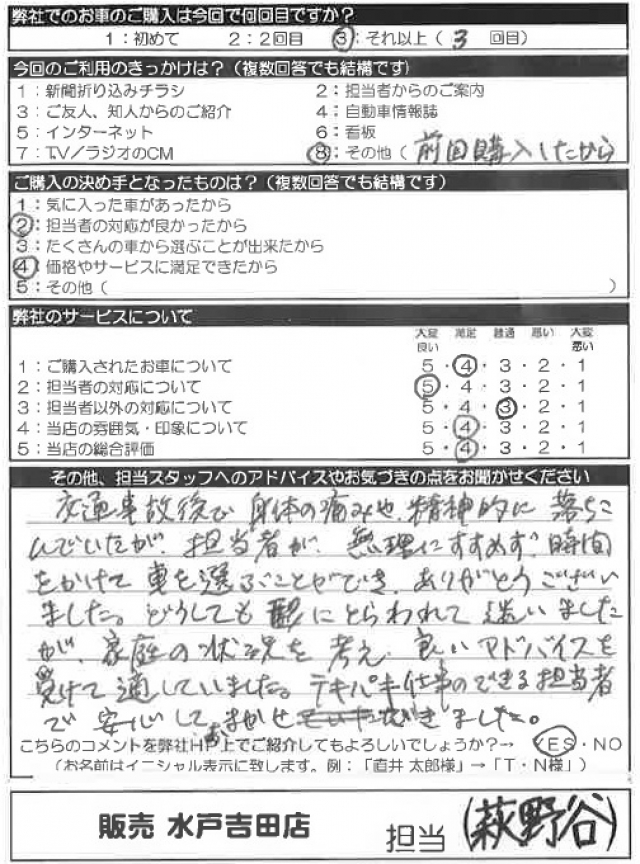 弊社でのお車のご購入は今回で何回目ですか？
1：初めて 2：2回目 3：それ以上（ 3 回目）
今回のご利用のきっかけは？（複数回答でも結構です）
1：新聞折り込みチラシ 2：担当者からのご案内
3：ご友人、知人からのご紹介 4：自動車情報誌
5：インターネット 6：看板
7：TV／ラジオのCM 8：その他（ 前回購入したから
ご購入の決め手となったものは？（複数回答でも結構です）
1：気に入った車があったから
2：担当者の対応が良かったから
3：たくさんの車から選ぶことが出来たから
4：価格やサービスに満足できたから
5：その他（ ）
弊社のサービスについて
大変良い 満足 普通 悪い 大変悪い
1：ご購入されたお車について 5・4・3・2・1
2：担当者の対応について 5・4・3・2・1
3：担当者以外の対応について 5・4・3・2・1
4：当店の雰囲気・印象について 5・4・3・2・1
5：当店の総合評価 5・4・3・2・1
その他、担当スタッフへのアドバイスやお気づきの点をお聞かせください
交通事故後で 身体の痛みや、精神的に 落ちこ
んでいたが、担当者が、無理にすすめず、時間
をかけて 車を選ぶことができ、ありがとうござい
ました。どうしても 形にとらわれて 迷いました
が、家庭の状況を考え、良いアドバイスを
受けて 適していました。テキパキ仕事のできる担当者
で 安心して おまかせできました。
こちらのコメントを弊社HP上でご紹介してもよろしいでしょうか？→ YES・NO
（お名前はイニシャル表示に致します。例：「直井 太郎様」→「T・N様」）
販売 水戸吉田店 担当（萩野谷）